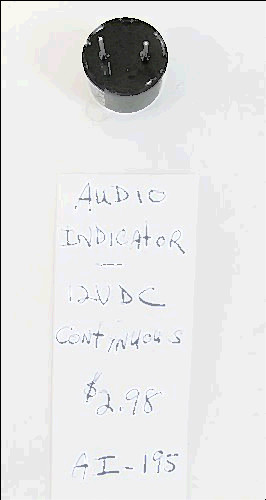 AUDIO
INDICATOR
—
12VDC
CONTINUOUS
$2.98
AI-195